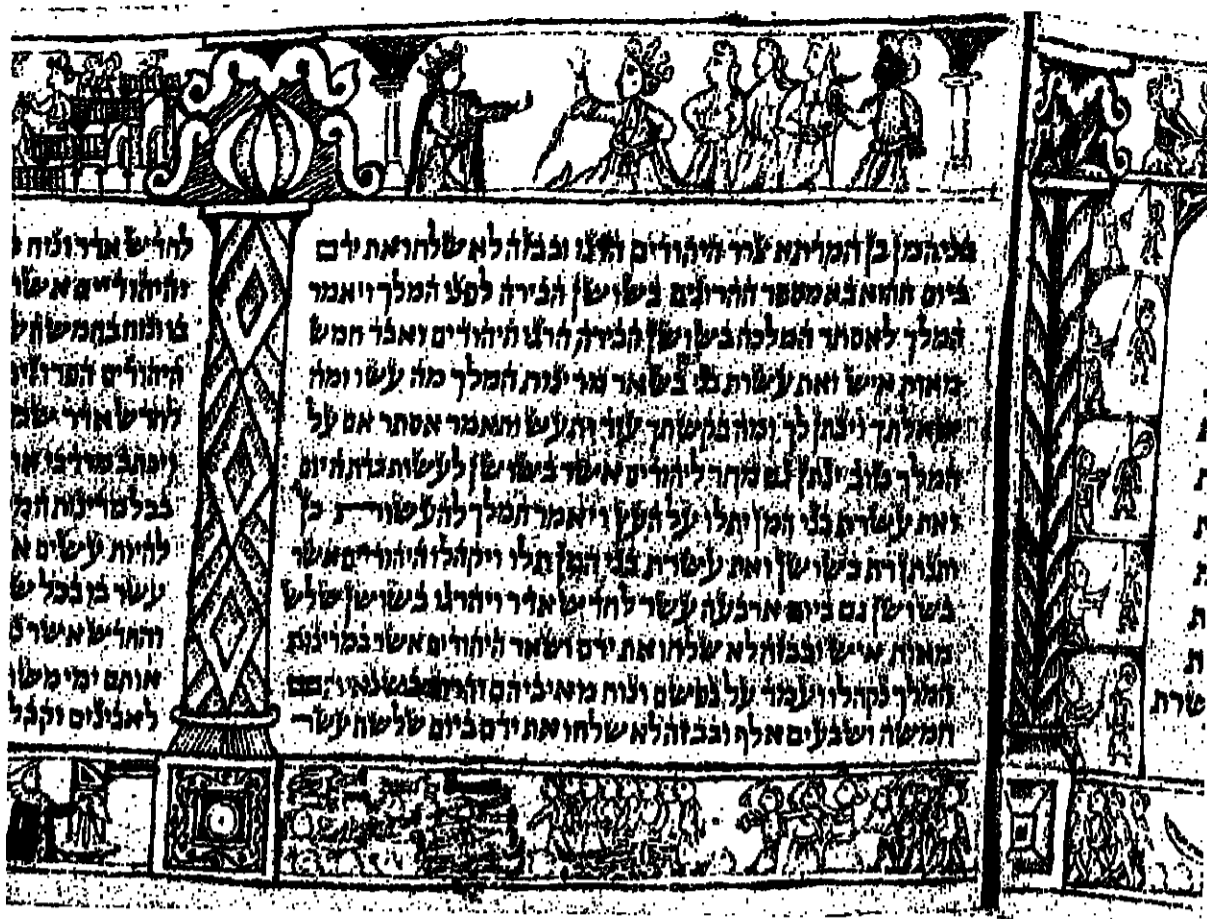 בני המן בן המדתא צרר היהודים הרגו ובבזה לא שלחו את ידם
ביום ההוא בא מספר ההרוגים בשושן הבירה לפני המלך ויאמר
המלך לאסתר המלכה בשושן הבירה הרגו היהודים ואבד חמש
מאות איש ואת עשרת בני בשאר מדינות המלך מה עשו ומה
שאלתך וינתן לך ומה בקשתך עוד ותעש ותאמר אסתר אם על
המלך טוב ינתן גם מחר ליהודים אשר בשושן לעשות כדת היום
ואת עשרת בני המן יתלו על העץ ויאמר המלך להעשות כן
ותנתן דת בשושן ואת עשרת בני המן תלו ויקהלו היהודים אשר
בשושן גם ביום ארבעה עשר לחדש אדר ויהרגו בשושן שלש
מאות איש ובבזה לא שלחו את ידם ושאר היהודים אשר במדינות
המלך נקהלו ועמד על נפשם ונוח מאיביהם והרג בשנאיהם
חמשה ושבעים אלף ובבזה לא שלחו את ידם ביום שלשה עשר
לחדש אדר ונוח
והיהודיים אשר
בו ונוח בחמשה עש
היהודים הפרוזים
לחדש אדר שמח
ויכתב מרדכי את
בכל מדינות המל
להיות עשים א
עשר בו בכל ש
והחדש אשר נ
אותם ימי משת
לאביונים וקבל